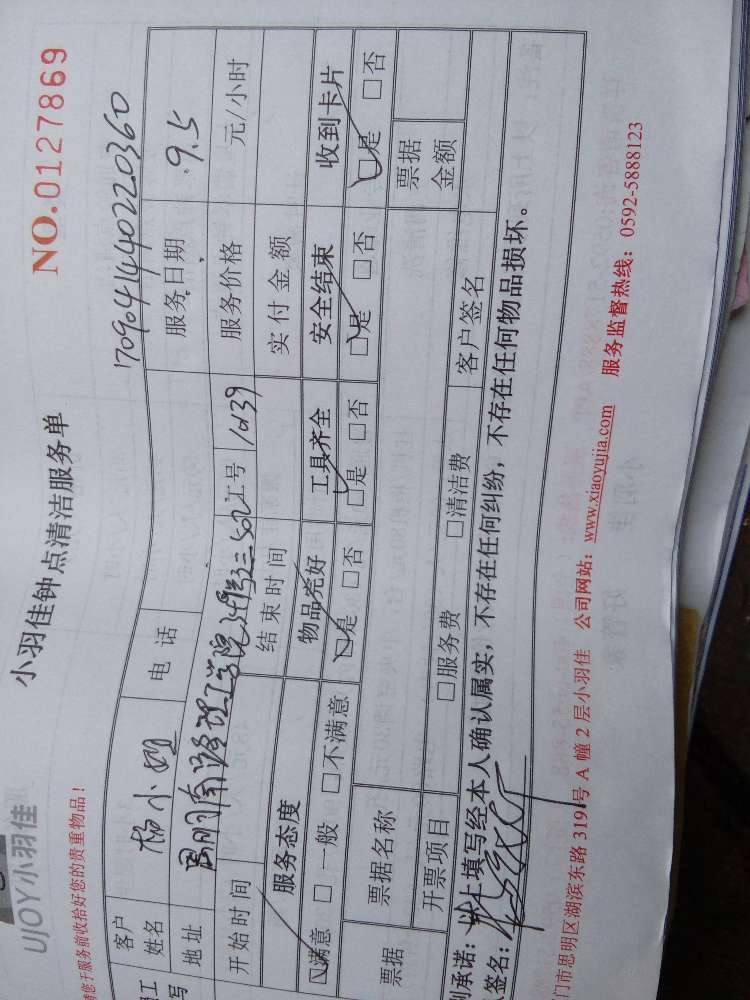 UJOY小羽佳
小羽佳钟点清洁服务单
NO.0127869
请您于服务前收拾好您的贵重物品!
17090414440220360
客户姓名 杨小姐 电话 服务日期 9.5
地址 工号 1039 服务价格 元/小时
开始时间 结束时间 实付金额
服务态度 物品完好 工具齐全 安全结束 收到卡片
□满意 □一般 □不满意 □是 □否 □是 □否 □是 □否 □是 □否
票据 票据名称 票据金额
开票项目 □服务费 □清洁费
承诺:以上填写经本人确认属实,不存在任何纠纷,不存在任何物品损坏。
签名: 客户签名
门市思明区湖滨东路319号A幢2层小羽佳 公司网站:www.xiaoyujia.com 服务监督热线:0592-5888123